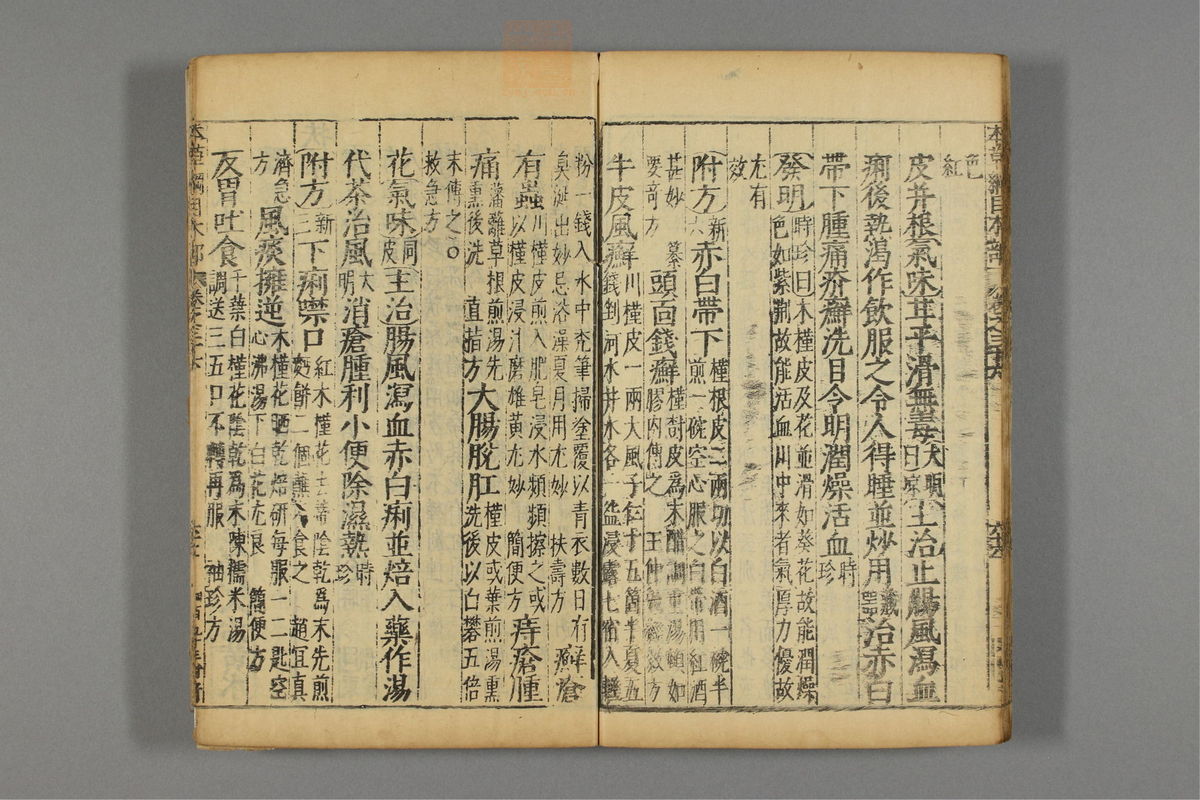 本草綱目木部 卷之三十六 六十六
色
紅
皮并根氣味甘平滑無毒大明曰涼主治止腸風瀉血
痢後熱渴作飲服之令人得睡並炒用藏器治赤白
帶下腫痛疥癬洗目令明潤燥活血時珍
發明時珍曰木槿皮及花並滑如葵花故能潤燥
色如紫荊故能活血川中來者氣厚力優故
尤有
效
附方新六赤白帶下槿根皮二兩切以白酒一碗半
煎一碗空心服之白帶用紅酒
甚妙纂
要奇方頭面錢癬槿樹皮為末醋調重湯頓如
膠內傅之王仲勉經效方
牛皮風癬川槿皮一兩大風子仁十五箇半夏五
錢剉河水井水各一盌浸露七宿入輕
粉一錢入水中禿筆掃塗覆以青衣數日有
臭涎出妙忌浴澡夏月用尤妙扶壽方癬瘡
有蟲川槿皮煎入肥皂浸水頻頻擦之或
以槿皮浸汁磨雄黃尤妙簡便方痔瘡腫
痛藩籬草根煎湯先
熏後洗直指方大腸脫肛槿皮或葉煎湯熏
洗後以白礬五倍
末傅之
救急方
花氣味同皮主治腸風瀉血赤白痢並焙入藥作湯
代茶治風大明消瘡腫利小便除濕熱時珍
附方新三下痢噤口紅木槿花去蒂陰乾為末先煎
麪餅二個蘸末食之趙宜真
濟急方風痰擁逆木槿花晒乾焙研每服一二匙空
心沸湯下白花尤良簡便方
反胃吐食千葉白槿花陰乾為末陳糯米湯
調送三五口不轉再服袖珍方
本草綱目木部